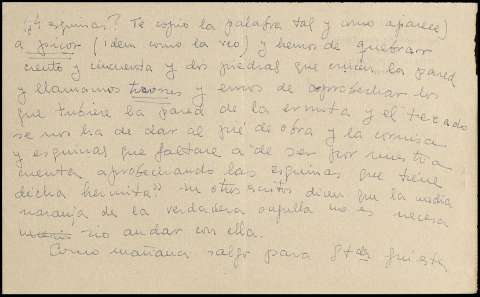 esquinas? Te copio la palabra tal y como aparece)
a picor (idem como la veo) y hemos de quebrar
ciento y cincuenta y dos piedras que crucen la pared
y llamamos trcones y emos de aprobechar los
que tubiere la pared de la ermita y el texado
se nos ha de dar al pié de obra y la cornisa
y esquinas que faltare a de ser por nuestra
cuenta aprobechando las esquinas que tiene
dicha hermita" en otros escritos dicen que la media
naranja de la verdadera capilla no es necesa
rio andar con ella.
Como mañana salgo para